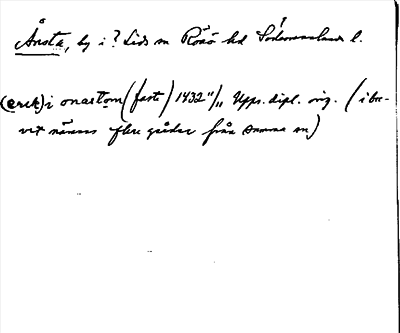 Årsta, by i? Lids sn Rönö hd Södermanland l.
(eric) i onastom (fast) 1432 11/11 Upps. dipl. orig. (i bre-
vet nämnes flere gårdar från samma sn)